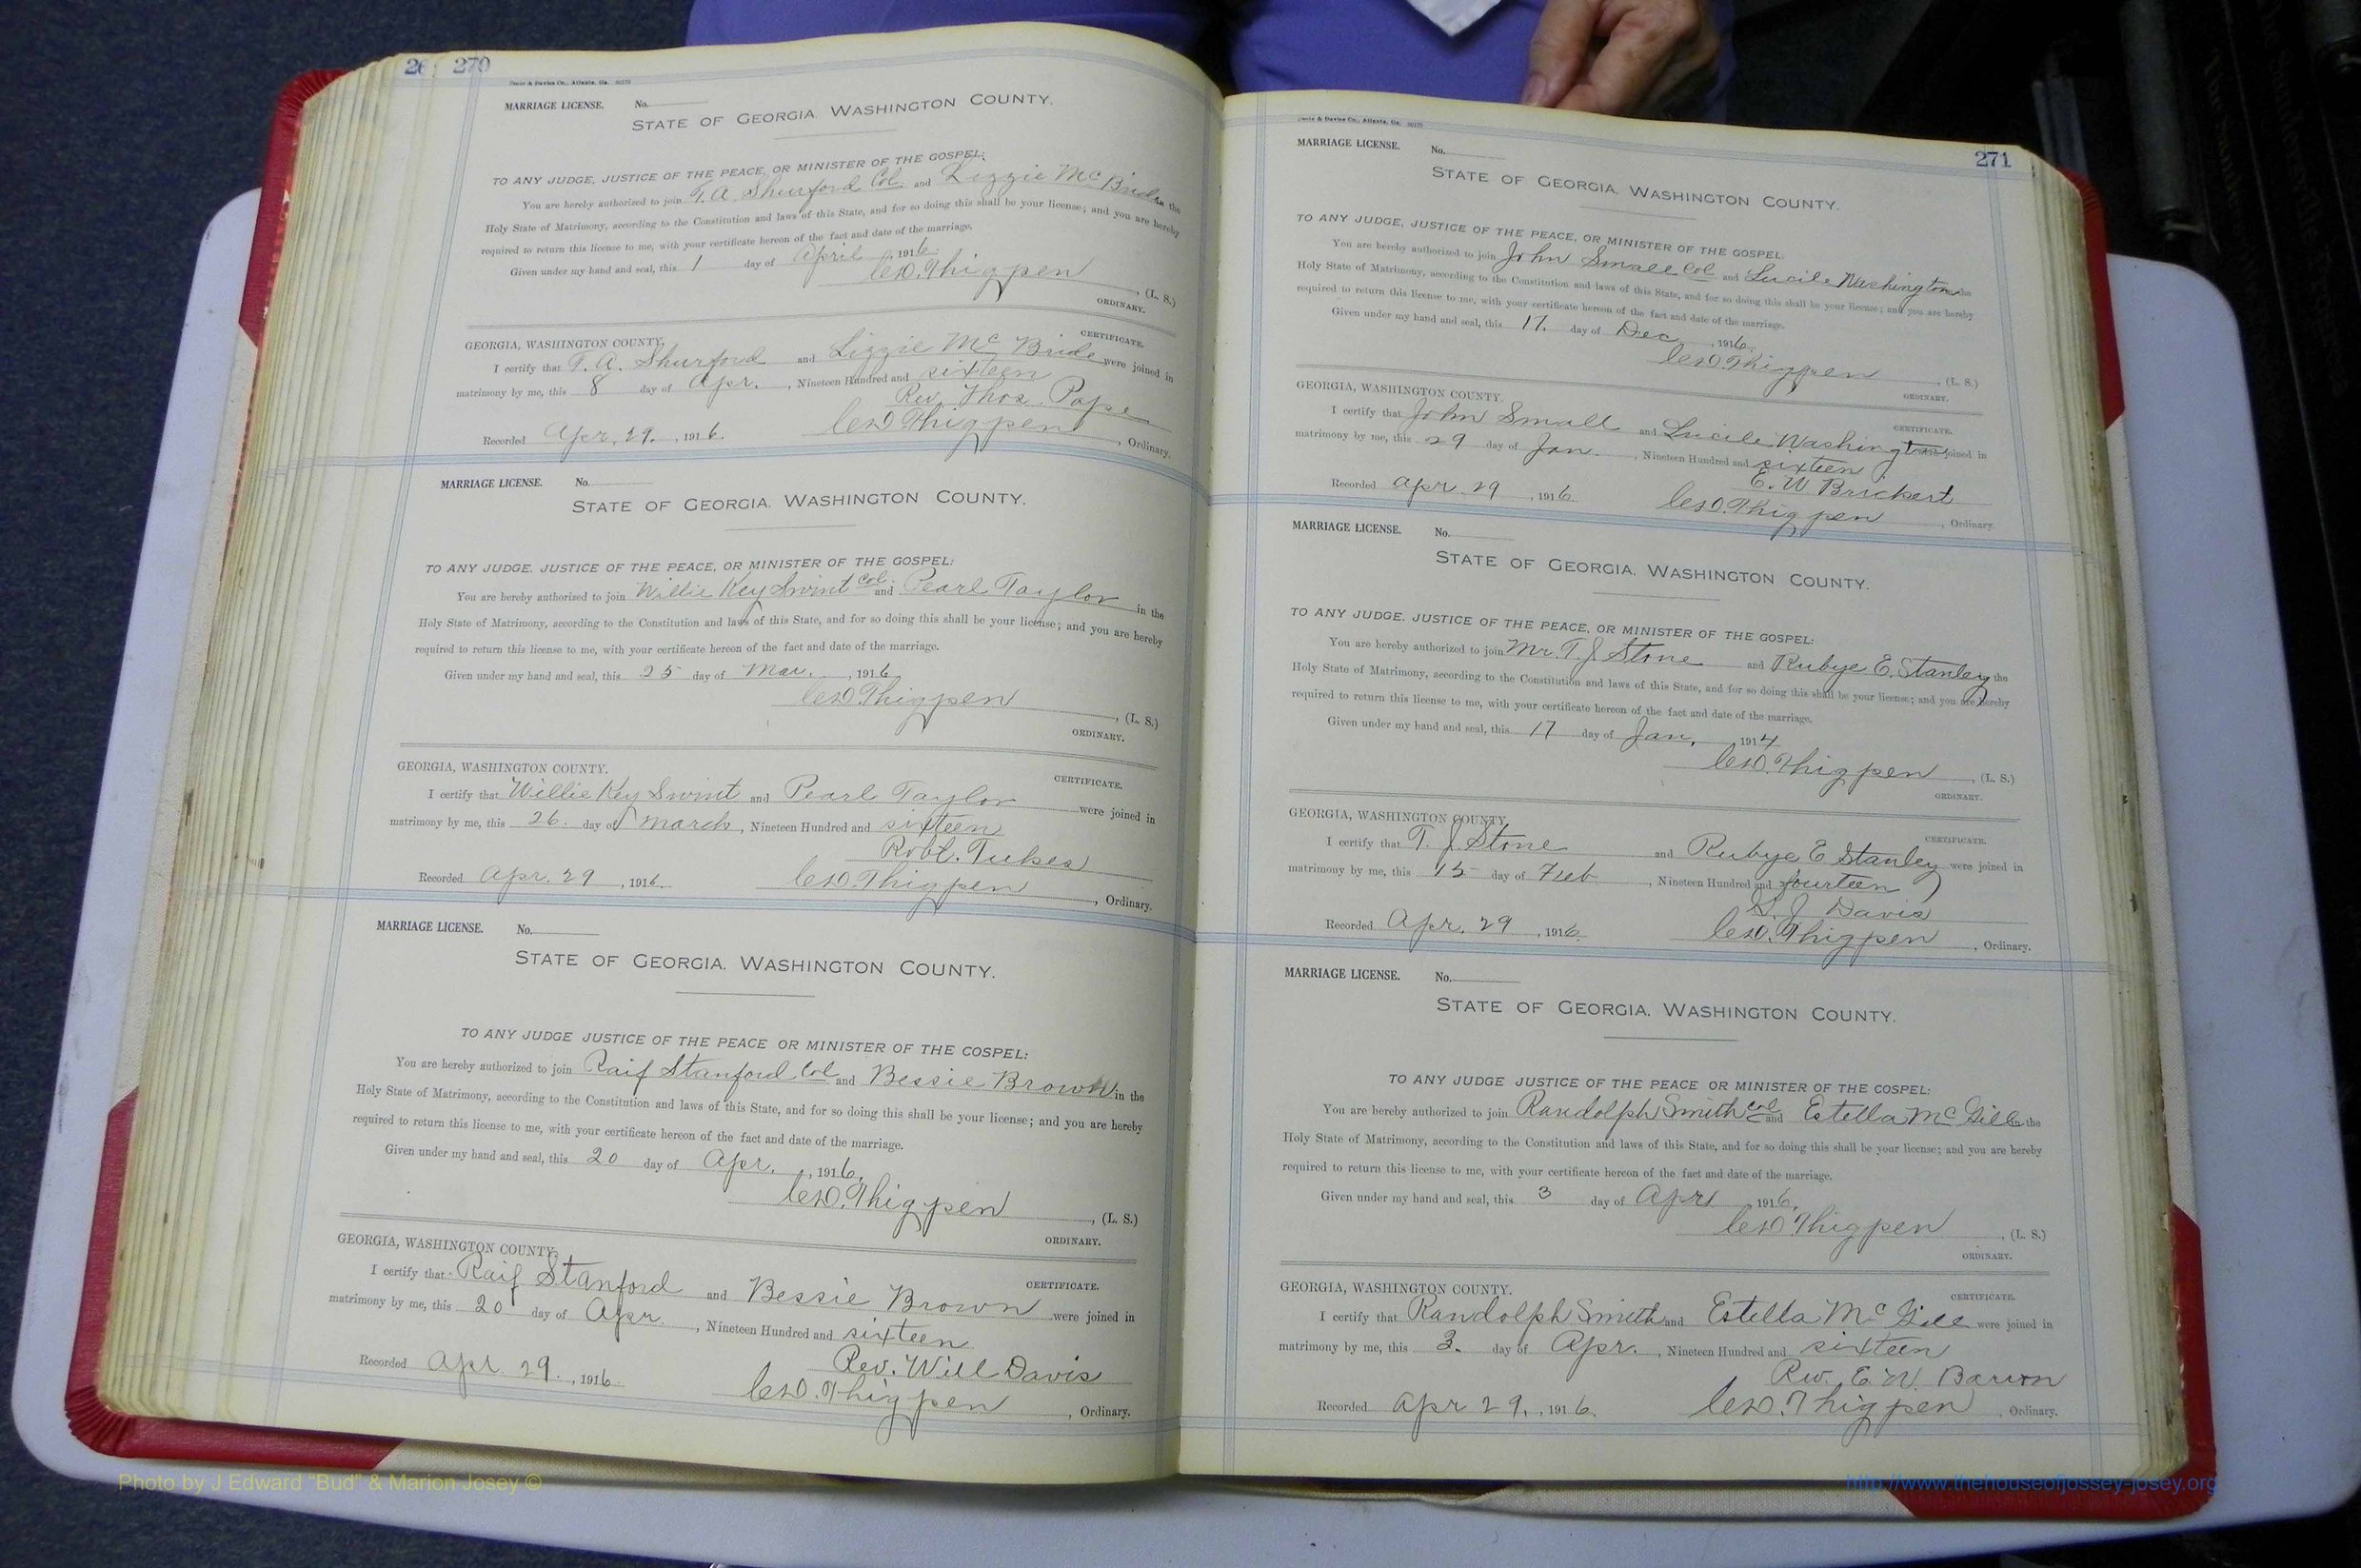 26 270
MARRIAGE LICENSE. No.
STATE OF GEORGIA, WASHINGTON COUNTY.
TO ANY JUDGE, JUSTICE OF THE PEACE, OR MINISTER OF THE GOSPEL:
You are hereby authorized to join T. A. Shurford Col. and Lizzie McBride in the
Holy State of Matrimony, according to the Constitution and laws of this State, and for so doing this shall be your license; and you are hereby
required to return this license to me, with your certificate hereon of the fact and date of the marriage.
Given under my hand and seal, this 1 day of April, 1916.
Thigpen, (L. S.)
ORDINARY.
CERTIFICATE.
GEORGIA, WASHINGTON COUNTY.
I certify that T. A. Shurford and Lizzie McBride were joined in
matrimony by me, this 8 day of Apr., Nineteen Hundred and sixteen
Rev. Thos. Pope
Recorded Apr. 29, 1916. Thigpen, Ordinary.
MARRIAGE LICENSE. No.
STATE OF GEORGIA, WASHINGTON COUNTY.
TO ANY JUDGE, JUSTICE OF THE PEACE, OR MINISTER OF THE GOSPEL:
You are hereby authorized to join Willie Key Swint Col. and Pearl Taylor in the
Holy State of Matrimony, according to the Constitution and laws of this State, and for so doing this shall be your license; and you are hereby
required to return this license to me, with your certificate hereon of the fact and date of the marriage.
Given under my hand and seal, this 25 day of Mar., 1916
Thigpen, (L. S.)
ORDINARY.
GEORGIA, WASHINGTON COUNTY.
CERTIFICATE.
I certify that Willie Key Swint and Pearl Taylor were joined in
matrimony by me, this 26. day of March, Nineteen Hundred and sixteen
Robt. Tukes
Recorded Apr. 29, 1916. Thigpen, Ordinary.
MARRIAGE LICENSE. No.
STATE OF GEORGIA, WASHINGTON COUNTY.
TO ANY JUDGE JUSTICE OF THE PEACE OR MINISTER OF THE COSPEL:
You are hereby authorized to join Raif Stanford Col and Bessie Brown in the
Holy State of Matrimony, according to the Constitution and laws of this State, and for so doing this shall be your license; and you are hereby
required to return this license to me, with your certificate hereon of the fact and date of the marriage.
Given under my hand and seal, this 20 day of Apr., 1916.
Thigpen, (L. S.)
ORDINARY.
GEORGIA, WASHINGTON COUNTY.
CERTIFICATE.
I certify that Raif Stanford and Bessie Brown were joined in
matrimony by me, this 20 day of Apr., Nineteen Hundred and sixteen
Rev. Will Davis
Recorded Apr. 29., 1916. Thigpen, Ordinary.
271
MARRIAGE LICENSE. No.
STATE OF GEORGIA, WASHINGTON COUNTY.
TO ANY JUDGE, JUSTICE OF THE PEACE, OR MINISTER OF THE GOSPEL:
You are hereby authorized to join John Small Col and Lucile Washington the
Holy State of Matrimony, according to the Constitution and laws of this State, and for so doing this shall be your license; and you are hereby
required to return this license to me, with your certificate hereon of the fact and date of the marriage.
Given under my hand and seal, this 17. day of Dec, 1916.
Thigpen, (L. S.)
ORDINARY.
GEORGIA, WASHINGTON COUNTY.
CERTIFICATE.
I certify that John Small and Lucile Washington were joined in
matrimony by me, this 29 day of Jan., Nineteen Hundred and sixteen
E. W Brickert
Recorded Apr. 29, 1916. Thigpen, Ordinary.
MARRIAGE LICENSE. No.
STATE OF GEORGIA, WASHINGTON COUNTY.
TO ANY JUDGE, JUSTICE OF THE PEACE, OR MINISTER OF THE GOSPEL:
You are hereby authorized to join Mr. T. J Stone and Rubye E. Stanley the
Holy State of Matrimony, according to the Constitution and laws of this State, and for so doing this shall be your license; and you are hereby
required to return this license to me, with your certificate hereon of the fact and date of the marriage.
Given under my hand and seal, this 17 day of Jan., 1914
Thigpen, (L. S.)
ORDINARY.
GEORGIA, WASHINGTON COUNTY.
CERTIFICATE.
I certify that T. J. Stone and Rubye E Stanley were joined in
matrimony by me, this 15 day of Feb, Nineteen Hundred and fourteen
J. Davis
Recorded Apr. 29, 1916. Thigpen, Ordinary.
MARRIAGE LICENSE. No.
STATE OF GEORGIA, WASHINGTON COUNTY.
TO ANY JUDGE JUSTICE OF THE PEACE OR MINISTER OF THE COSPEL:
You are hereby authorized to join Randolph Smith Col and Estella McGill in the
Holy State of Matrimony, according to the Constitution and laws of this State, and for so doing this shall be your license; and you are hereby
required to return this license to me, with your certificate hereon of the fact and date of the marriage.
Given under my hand and seal, this 3 day of Apr, 1916.
Thigpen, (L. S.)
ORDINARY.
GEORGIA, WASHINGTON COUNTY.
CERTIFICATE.
I certify that Randolph Smith and Estella McGill were joined in
matrimony by me, this 3. day of Apr., Nineteen Hundred and sixteen
Rev. E. W. Barron
Recorded Apr 29., 1916. Thigpen, Ordinary.
Photo by J Edward "Bud" & Marion Josey ©
http://www.thehouseofjossey-josey.org